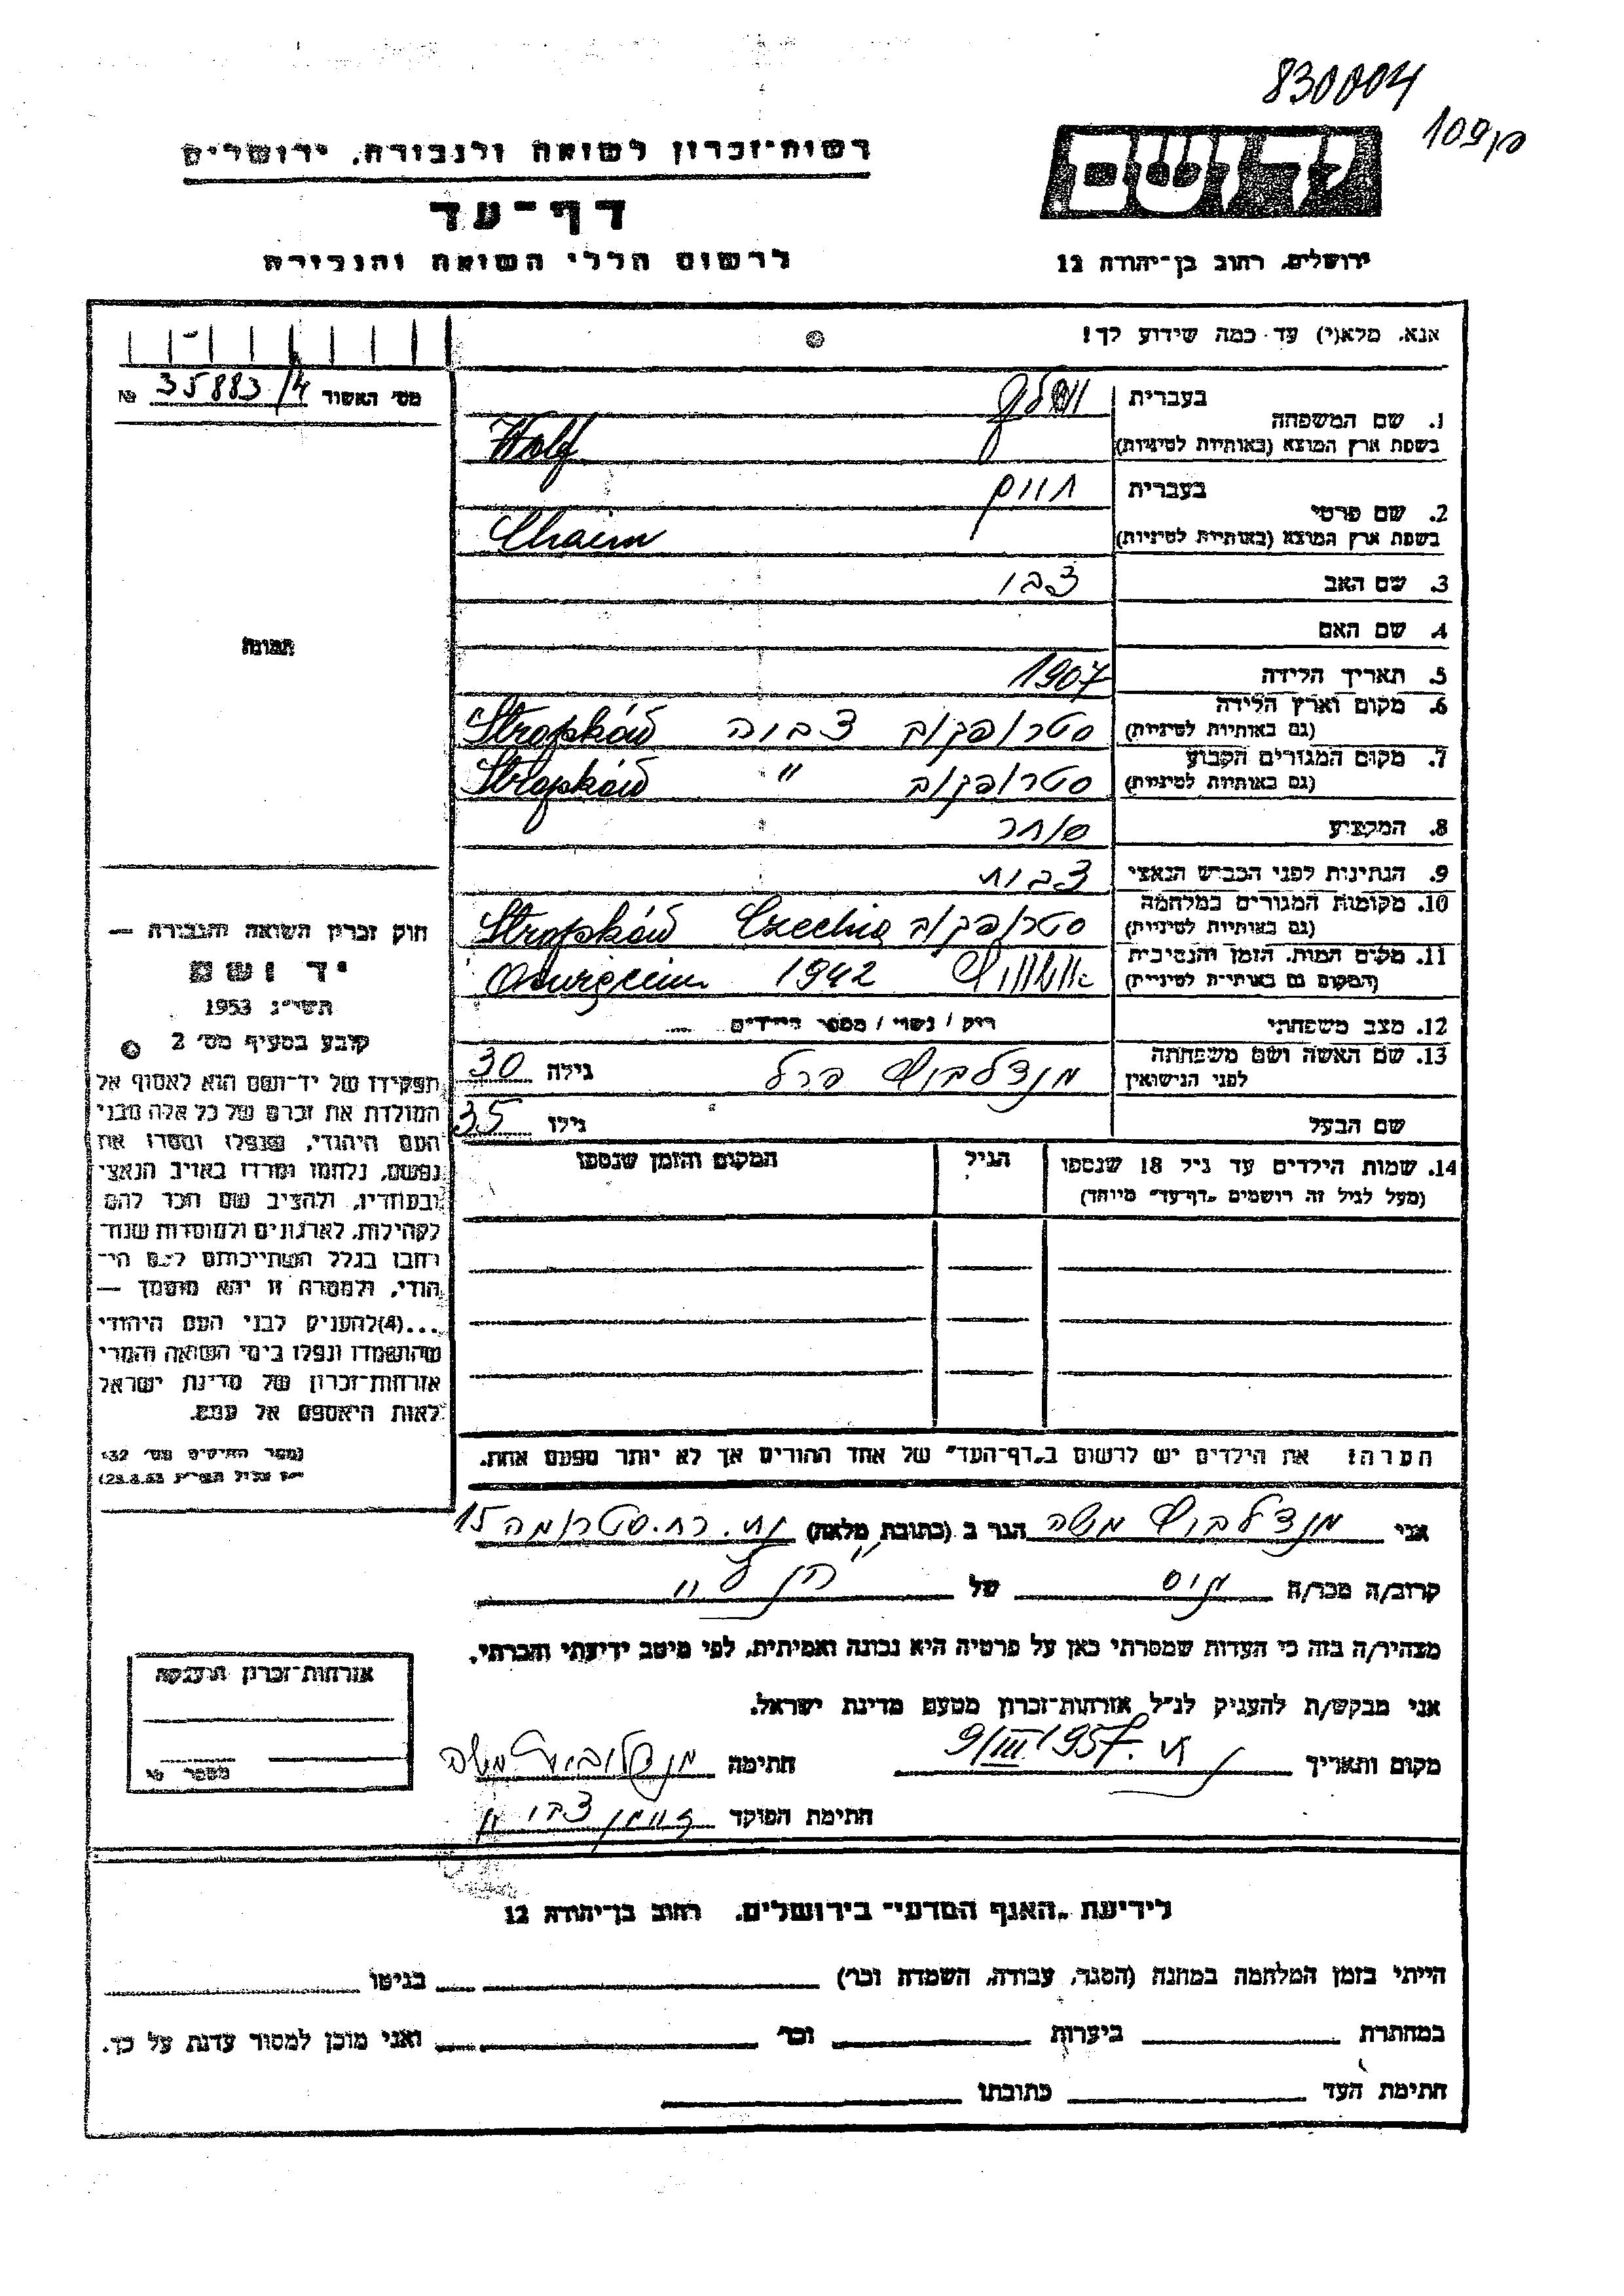 830004
109
רשות-זכרון לשואה ולגבורה, ירושלים
דף-עד
לרשום חללי השואה והגבורה
יד ושם
ירושלים, רחוב בן-יהודה 12
אנא, מלא(י) עד כמה שידוע לך!
מס' האשור 35883/4 №
1. שם המשפחה
בעברית
בשפת ארץ המוצא (באותיות לטיניות) Wolf
2. שם פרטי
בעברית חיים
בשפת ארץ המוצא (באותיות לטיניות) Chaim
3. שם האב צבי
4. שם האם
5. תאריך הלידה 1907
6. מקום וארץ הלידה (גם באותיות לטיניות) סטרופקוב צ'כיה Stropków
7. מקום המגורים הקבוע (גם באותיות לטיניות) סטרופקוב " Stropków
8. המקצוע סוחר
9. הנתינות לפני הכבוש הנאצי צ'כית
10. מקומות המגורים במלחמה (גם באותיות לטיניות) סטרופקוב Czechia Stropków
11. מקום המות, הזמן והנסיבות (המקום גם באותיות לטיניות) 1942
12. מצב משפחתי רוק / נשוי / מספר הילדים
13. שם האשה ושם משפחתה לפני הנישואין מנדלבוים פרל גילה 30
שם הבעל גילו 35
14. שמות הילדים עד גיל 18 שנספו
(מעל לגיל זה רושמים "דף-עד" מיוחד)
הגיל
המקום והזמן שנספו
הערה: את הילדים יש לרשום ב"דף-העד" של אחד ההורים אך לא יותר מפעם אחת.
תמונה
חוק זכרון השואה והגבורה —
יד ושם
תשי"ג 1953
קובע בסעיף מס' 2
תפקידו של יד-ושם הוא לאסוף אל
המולדת את זכרם של כל אלה מבני
העם היהודי, שנפלו ומסרו את
נפשם, נלחמו ומרדו באויב הנאצי
ובעוזריו, ולהציב שם וזכר להם
לקהילות, לארגונים ולמוסדות שנח-
רבו בגלל השתייכותם לעם הי-
הודי, ולמטרה זו יהא מוסמך —
...(4) להעניק לבני העם היהודי
שהושמדו ונפלו בימי השואה והמרי
אזרחות-זכרון של מדינת ישראל
לאות היאספם אל עמם.
(ספר החוקים מס' 132
אני מנדלבוים משה הגר ב (כתובת מלאה) 15
קרוב/ה מכר/ה גיס של
מצהיר/ה בזה כי העדות שמסרתי כאן על פרטיה היא נכונה ואמיתית, לפי מיטב ידיעתי והכרתי.
אני מבקש/ת להעניק לנ"ל אזרחות-זכרון מטעם מדינת ישראל.
מקום ותאריך 9/III 1957 חתימה
חתימת הפוקד
אזרחות-זכרון הוענקה
מספר
לידיעת "האגף המדעי" בירושלים, רחוב בן-יהודה 12
הייתי בזמן המלחמה במחנה (הסגר, עבודה, השמדה וכו') בגיטו
במחתרת ביערות וכו' ואני מוכן למסור עדות על כך.
חתימת העד כתובתו